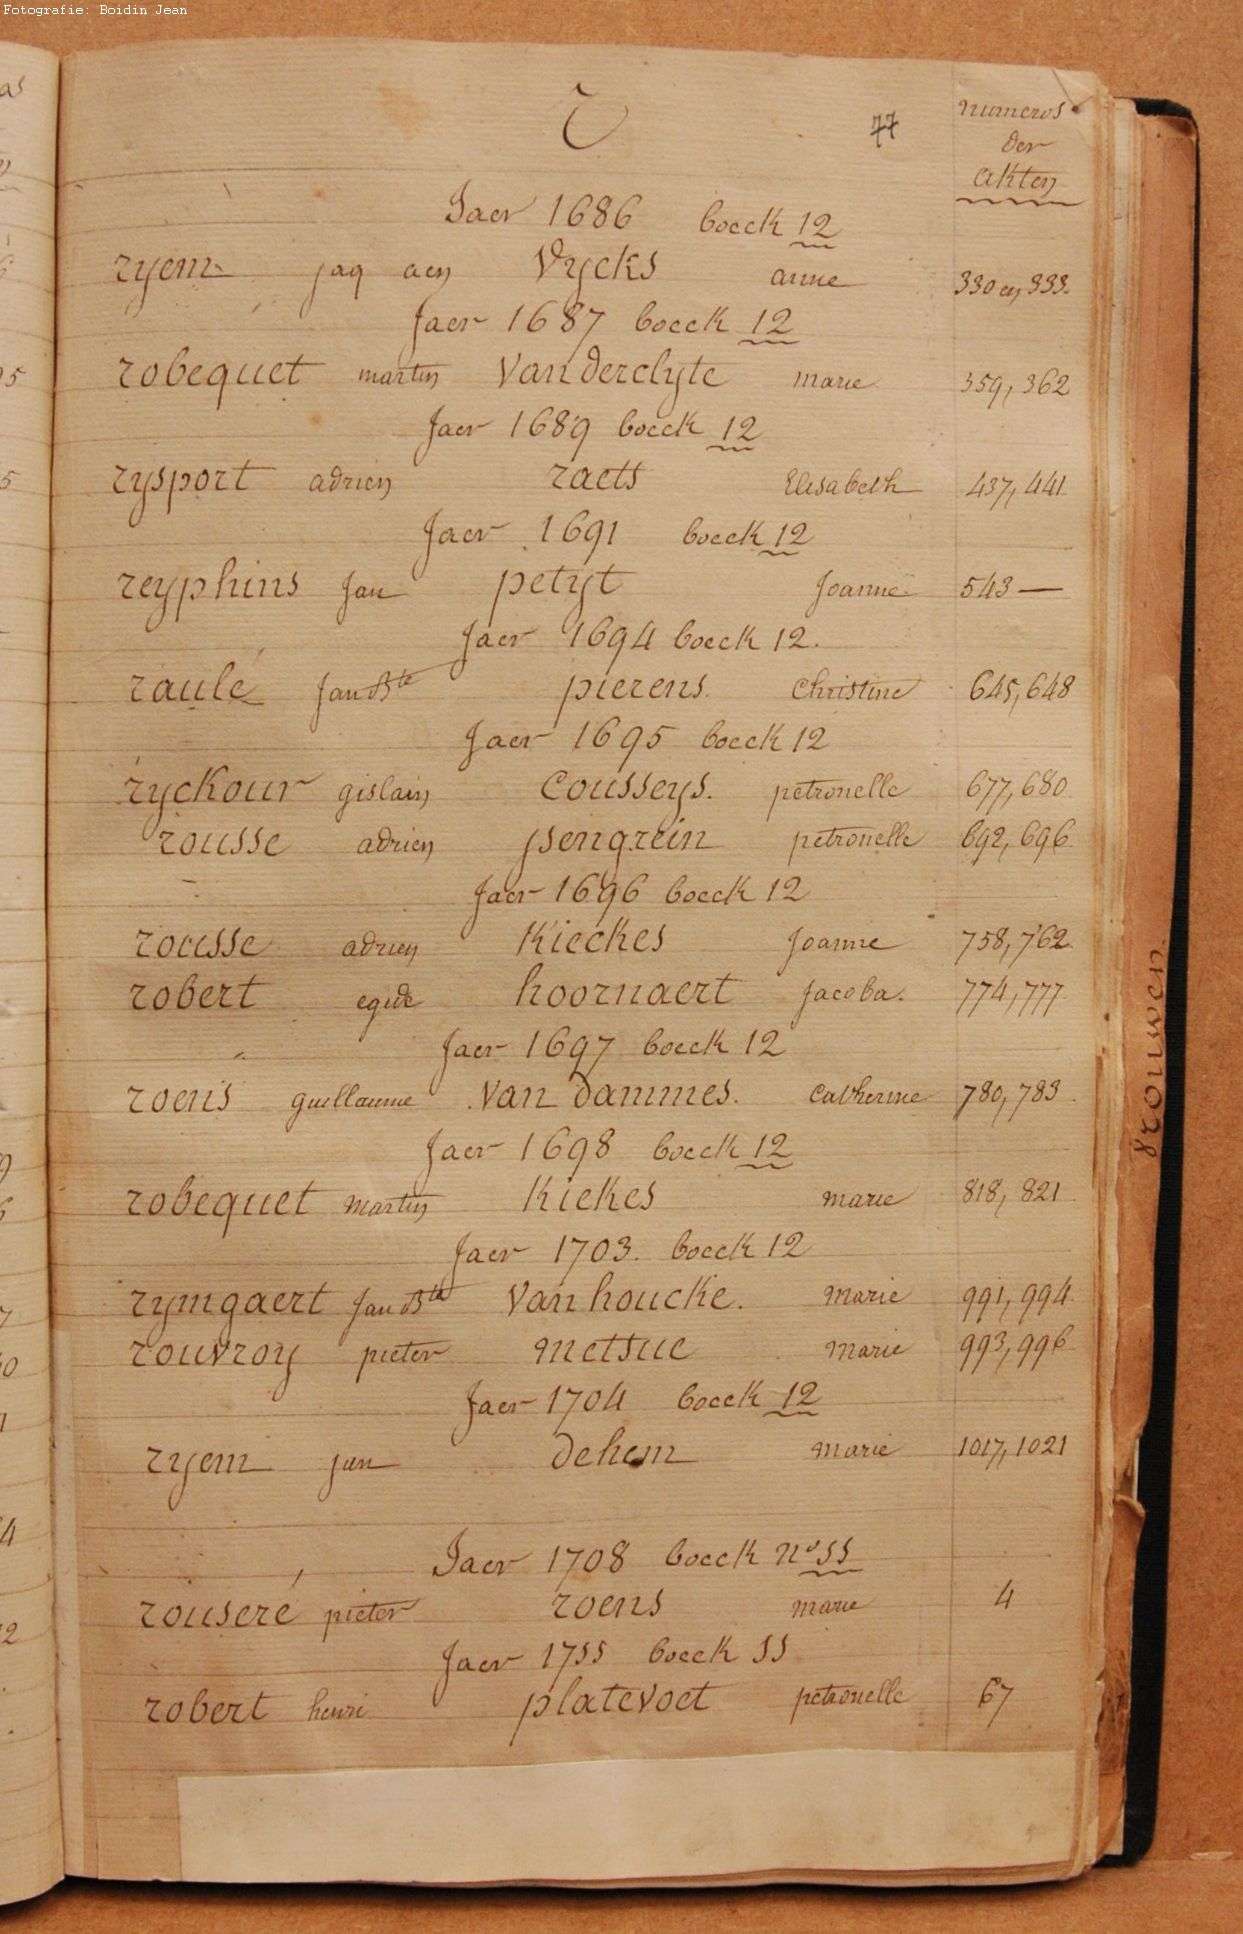 Fotografie: Boidin Jean
r 77 numeros
der
akten
Jaer 1686 boeck 12
ryem jaq aen Vycks anne 330 en 333.
Jaer 1687 boeck 12
robequet martin Vanderclyte marie 359, 362
Jaer 1689 boeck 12
rysport adrien raets Elisabeth 437, 441
Jaer 1691 boeck 12
reyphins Jan petyt Joanne 543 —
Jaer 1694 boeck 12.
raulé Jan Bte pierens. Christine 645, 648
Jaer 1695 boeck 12
ryckour gislain Cousseys. petronelle 677, 680
rousse adrien ysengrein petronelle 692, 696
Jaer 1696 boeck 12
rousse adrien Kieckes Joanne 758, 762.
robert egide hoornaert Jacoba. 774, 777
Jaer 1697 boeck 12
roens guillaume van dammes. Catherine 780, 783.
Jaer 1698 boeck 12
robequet martin Kiekes marie 818, 821
Jaer 1703. boeck 12
rymgaert Jan Bte Vanhoucke. marie 991, 994
rouvroy pieter metsue marie 993, 996
Jaer 1704 boeck 12
ryem jan dehem marie 1017, 1021
Jaer 1708 boeck no 55
rouseré pieter roens marie 4
Jaer 1755 boeck 55
robert henri platevoet petronelle 67